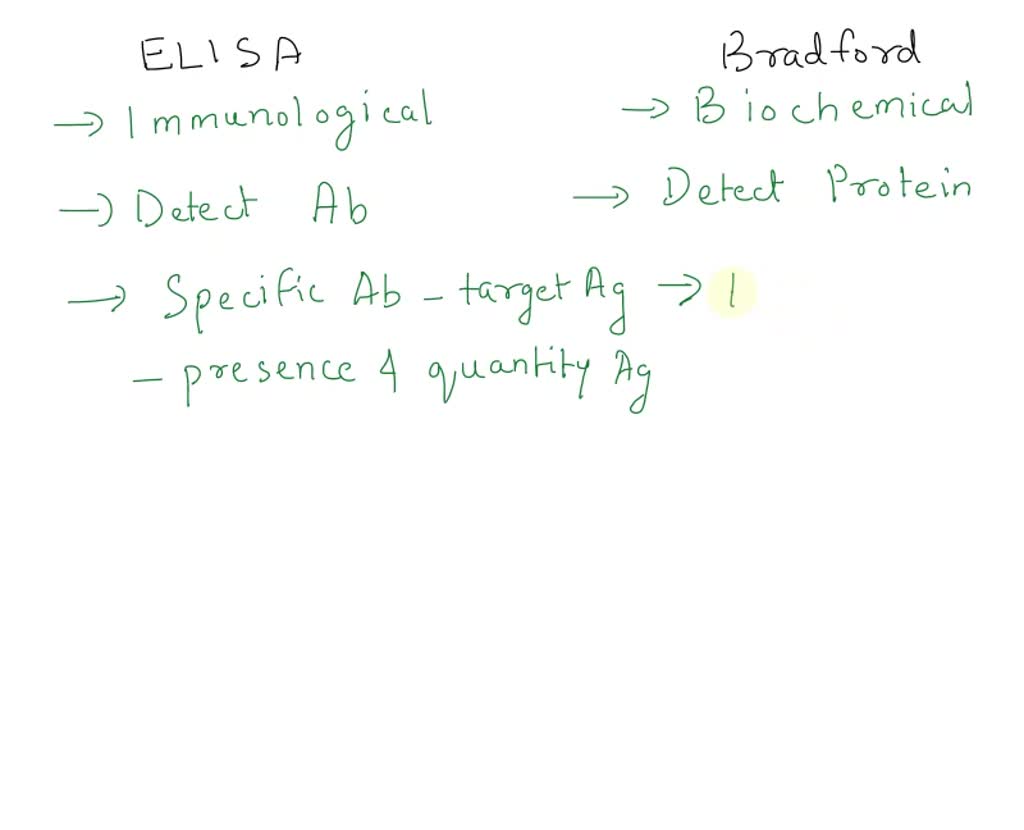 ELISA Bradford
→ Immunological → Biochemical
→ Detect Ab → Detect Protein
→ Specific Ab - target Ag → I
- presence & quantity Ag